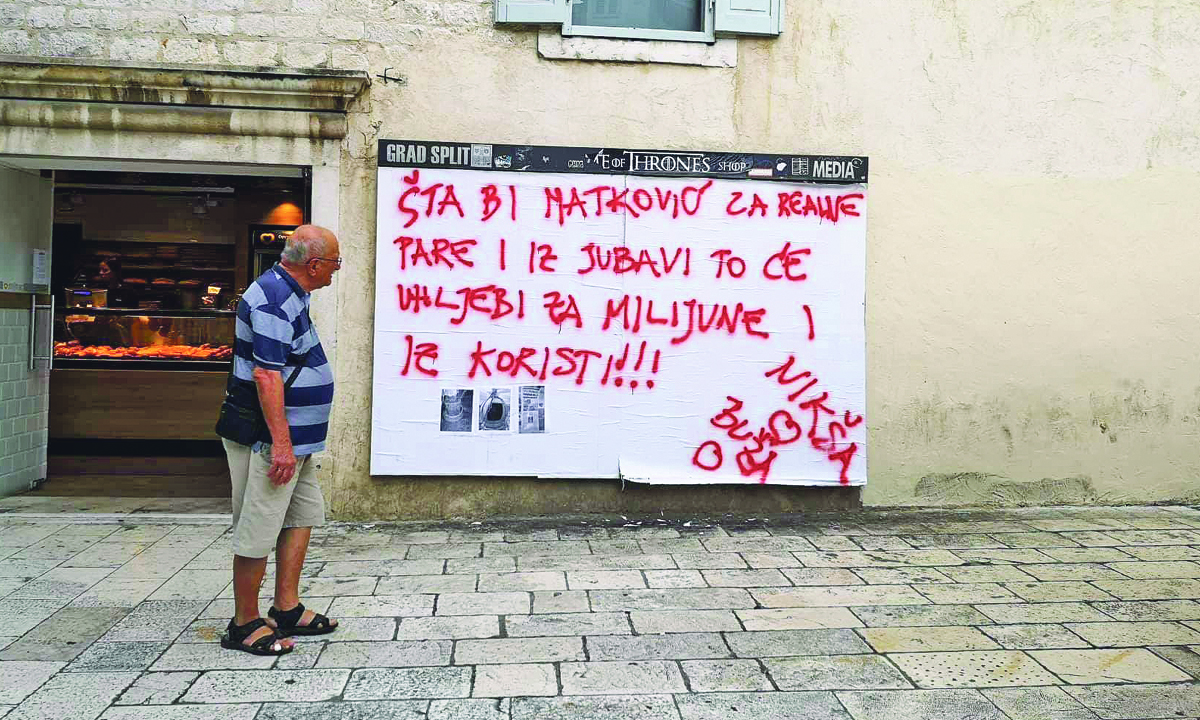 GRAD SPLIT
E OF THRONES SHOP
MEDIA
ŠTA BI MATKOVIĆ ZA REALNE
PARE I IZ JUBAVI TO ĆE
UHLJEBI ZA MILIJUNE I
IZ KORISTI!!!
NIKŠA